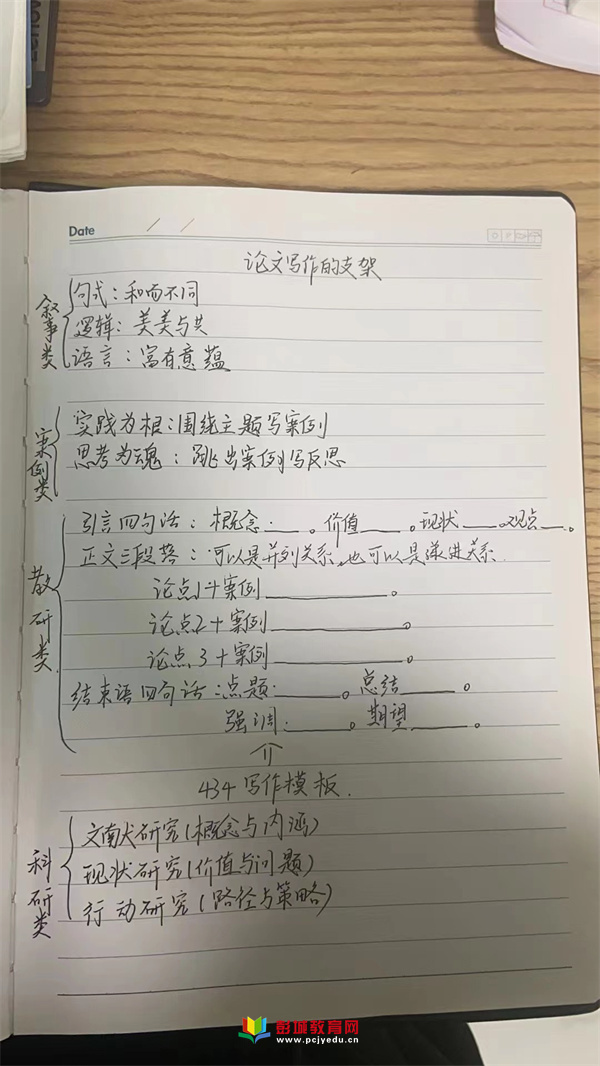 Date / /
论文写作的支架
叙事类
句式：和而不同
逻辑：美美与共
语言：富有意蕴
案例类
实践为根：围绕主题写案例
思考为魂：跳出案例写反思
教研类
引言四句话：概念：___。价值___。现状___。观点___。
正文三段落：可以是并列关系，也可以是递进关系.
论点1+案例___。
论点2+案例___。
论点3+案例___。
结束语四句话：点题：___。总结___。
强调：___。期望___。
434写作模板.
科研类
文献研究(概念与内涵)
现状研究(价值与问题)
行动研究(路径与策略)
彭城教育网
www.pcjyedu.cn